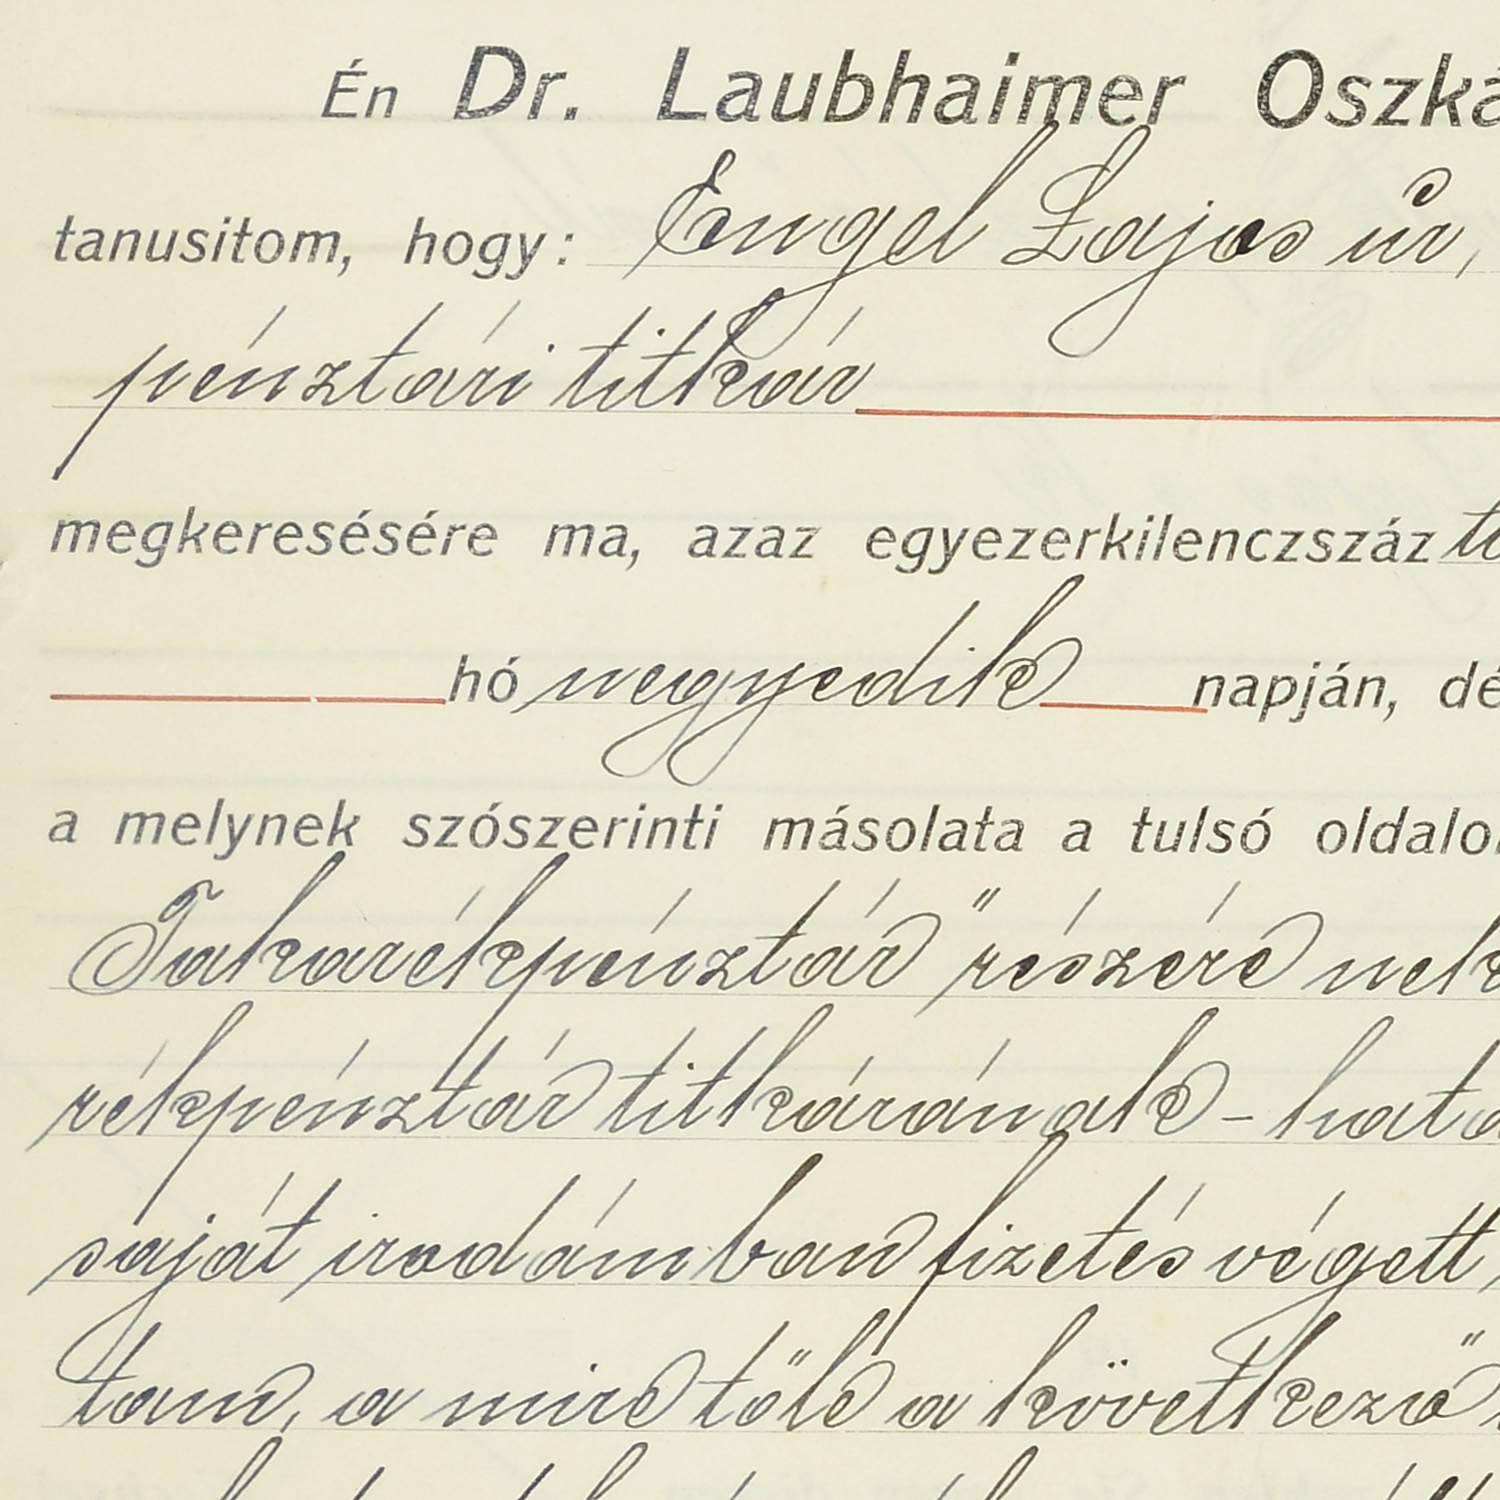 Én Dr. Laubhaimer Oszká
tanusitom, hogy: Engel Lajos úr,
pénztári titkár
megkeresésére ma, azaz egyezerkilenczszáz
hó negyedik napján, dé
a melynek szószerinti másolata a tulsó oldalo
Takarékpénztár" részére nek
rékpénztár titkárának - hatá
saját irodámban fizetés végett
tam, a mire tőle a következő